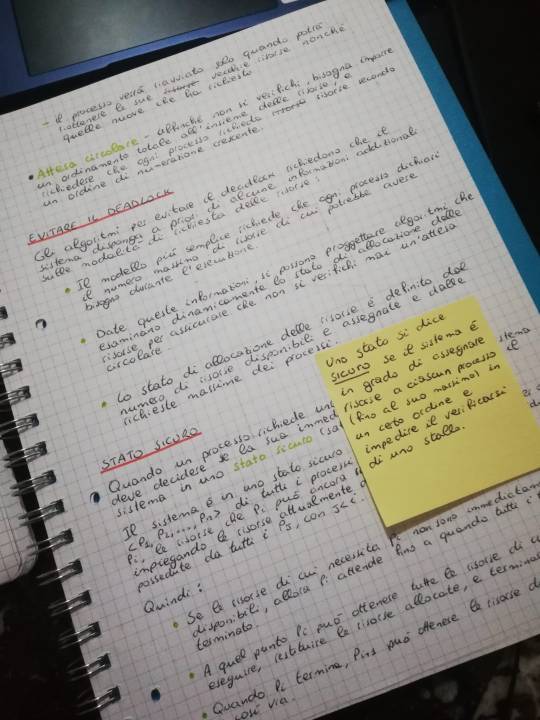 - il processo verrà riavviato solo quando potrà
riottenere le sue vecchie risorse nonché
quelle nuove che ha richiesto
• Attesa circolare - affinché non si verifichi, bisogna imporre
un ordinamento totale all'insieme delle risorse, e
richiedere che ogni processo richieda risorse secondo
un ordine di numerazione crescente.
EVITARE IL DEADLOCK
Gli algoritmi per evitare il deadlock richiedono che il
sistema disponga a priori di alcune informazioni addizionali
sulle modalità di richiesta delle risorse:
• Il modello più semplice richiede che ogni processo dichiari
il numero massimo di risorse di cui potrebbe avere
bisogno durante l'esecuzione.
• Date queste informazioni, si possono proggettare algoritmi che
esaminano dinamicamente lo stato di allocazione delle
risorse per assicurare che non si verifichi mai un'attesa
circolare
• Lo stato di allocazione delle risorse è definito dal
numero di risorse disponibili e assegnate e dalle
richieste massime dei processi.
STATO SICURO
• Quando un processo richiede
deve decidere se la sua
sistema in uno stato sicuro
Il sistema è in uno stato sicuro
di tutti i
Pi, le risorse che Pi può ancora
impiegando le risorse attualmente
possedute da tutti i Pj, con j<i.
Quindi:
• Se le risorse di cui necessita Pi non sono
disponibili, allora Pi attende fino a quando tutti i
terminato.
• A quel punto Pi può ottenere tutte le risorse di
eseguire, restituire le risorse allocate, e
• Quando Pi termina, Pi+1 può ottenere le risorse
così via.
Uno stato si dice
sicuro se il sistema è
in grado di assegnare
risorse a ciascun processo
(fino al suo massimo) in
un certo ordine e
impedire il verificarsi
di uno stallo.